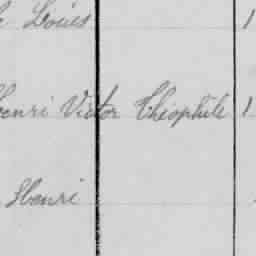 Louis 1
Henri Victor Théophile 1
Henri